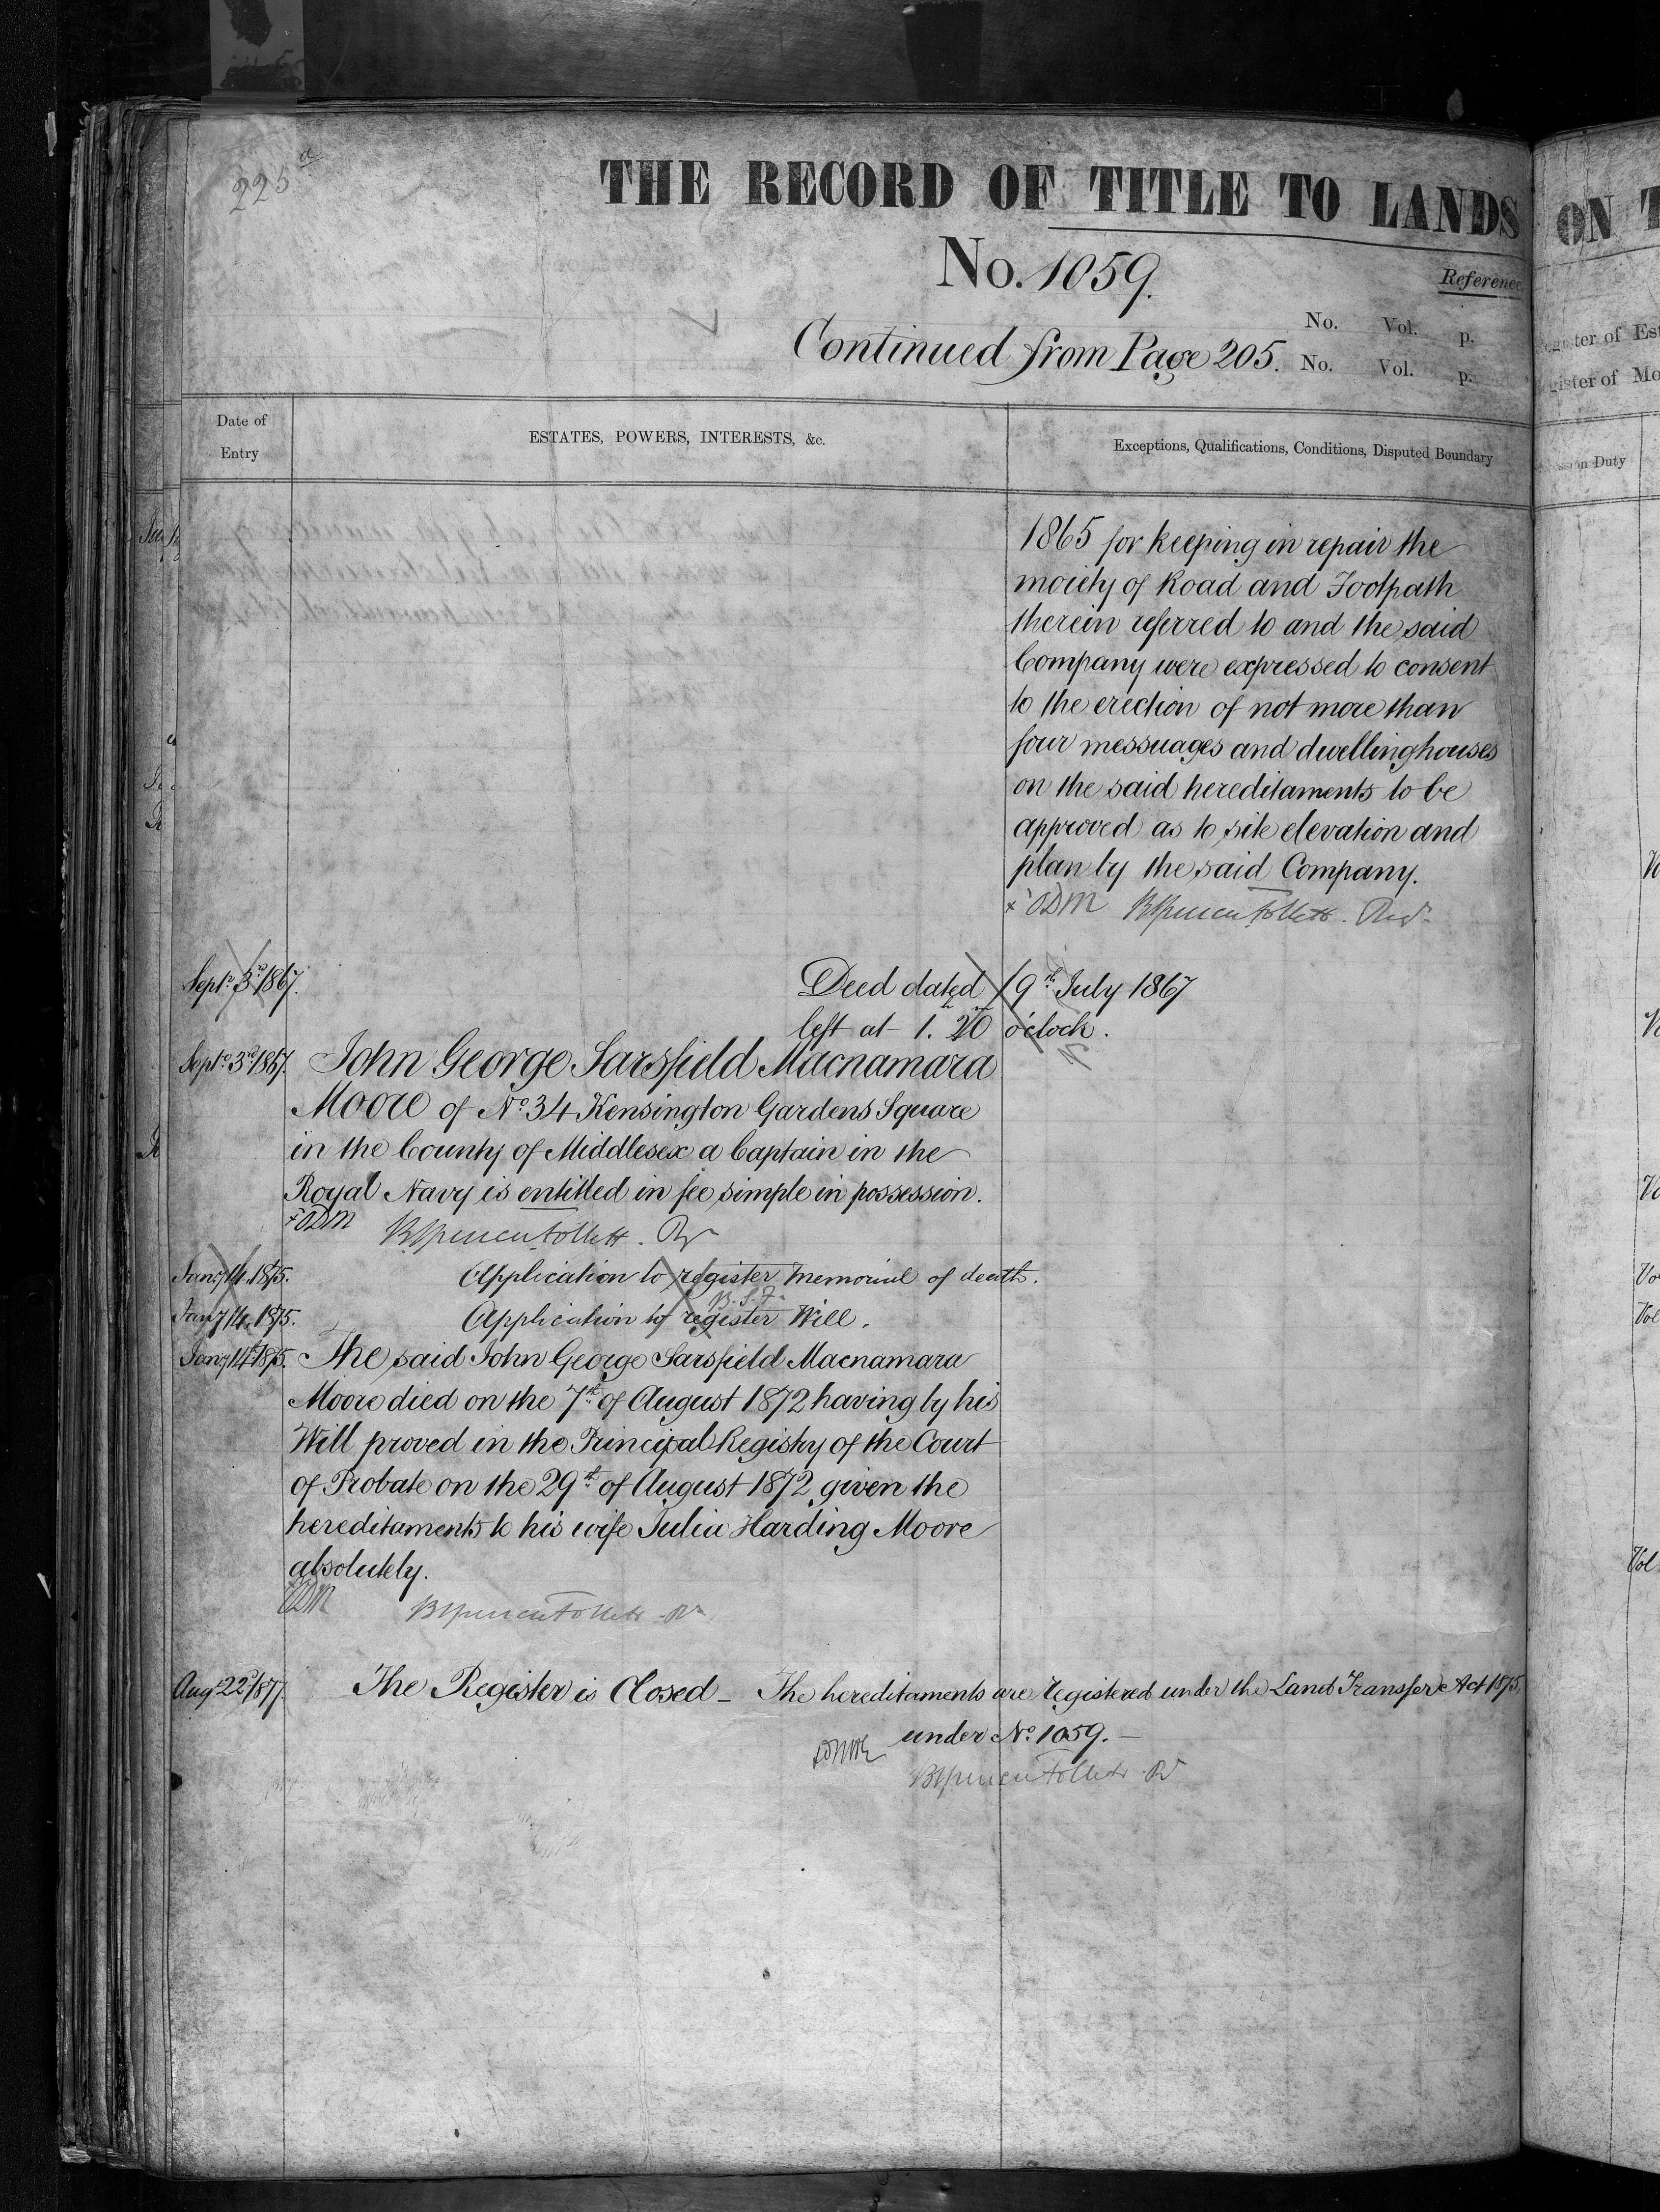 225a
THE RECORD OF TITLE TO LANDS ON
No. 1059.
Reference
No. Vol. p.
Continued from Page 205.
No. Vol. p.
Date of Entry
ESTATES, POWERS, INTERESTS, &c.
Exceptions, Qualifications, Conditions, Disputed Boundary
1865 for keeping in repair the
moiety of Road and Footpath
therein referred to and the said
Company were expressed to consent
to the erection of not more than
four messuages and dwellinghouses
on the said hereditaments to be
approved as to site elevation and
plan by the said Company.
BSpencer Follett. Regr
Sept. 3rd 1867. Deed dated 19th July 1867
left at 1. 20 o'clock.
Sept. 3rd 1867. John George Sarsfield Macnamara
Moore of No. 34 Kensington Gardens Square
in the County of Middlesex a Captain in the
Royal Navy is entitled in fee simple in possession.
BSpencer Follett. Rr
Jany 14. 1875. Application to register memorial of death.
B.S.F.
Jany 14. 1875. Application to register Will.
Jany 14th 1875. The said John George Sarsfield Macnamara
Moore died on the 7th of August 1872 having by his
Will proved in the Principal Registry of the Court
of Probate on the 29th of August 1872 given the
hereditaments to his wife Julia Harding Moore
absolutely.
BSpencer Follett. Rr
Augt 22d 1877. The Register is Closed - The hereditaments are registered under the Land Transfer Act 1875,
under No. 1059. -
BSpencer Follett. Rr